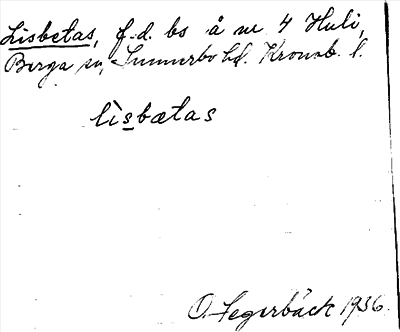 Lisbetas, f.d. bs å nr 4 Huli,
Berga sn, Sunnerbo hd. Kronob. l.
lìsbætas
O. Fegerbäck 1936.